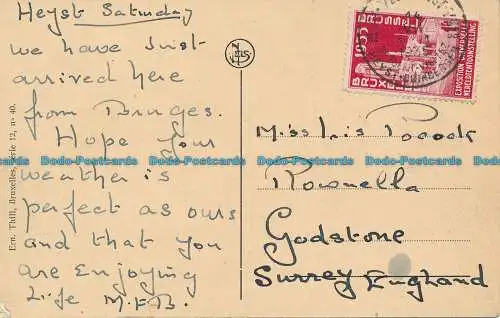 Heyst Saturday
we have just
arrived here
from Bruges.
Hope your
weather is
perfect as ours
and that you
are enjoying
life M.F.B.
Ern. Thill, Bruxelles, Série 12, no 40.
NELS
1935
BRUXELLES
BRUSSEL
EXPOSITION UNIVERSELLE
WERELDTENTOONSTELLING
Miss Iris Pocock
Rownella
Godstone
Surrey England
Dodo-Postcards Dodo-Postcards Dodo-Postcards Dodo-Postcards
Dodo-Postcards Dodo-Postcards Dodo-Postcards Dodo-Postcards